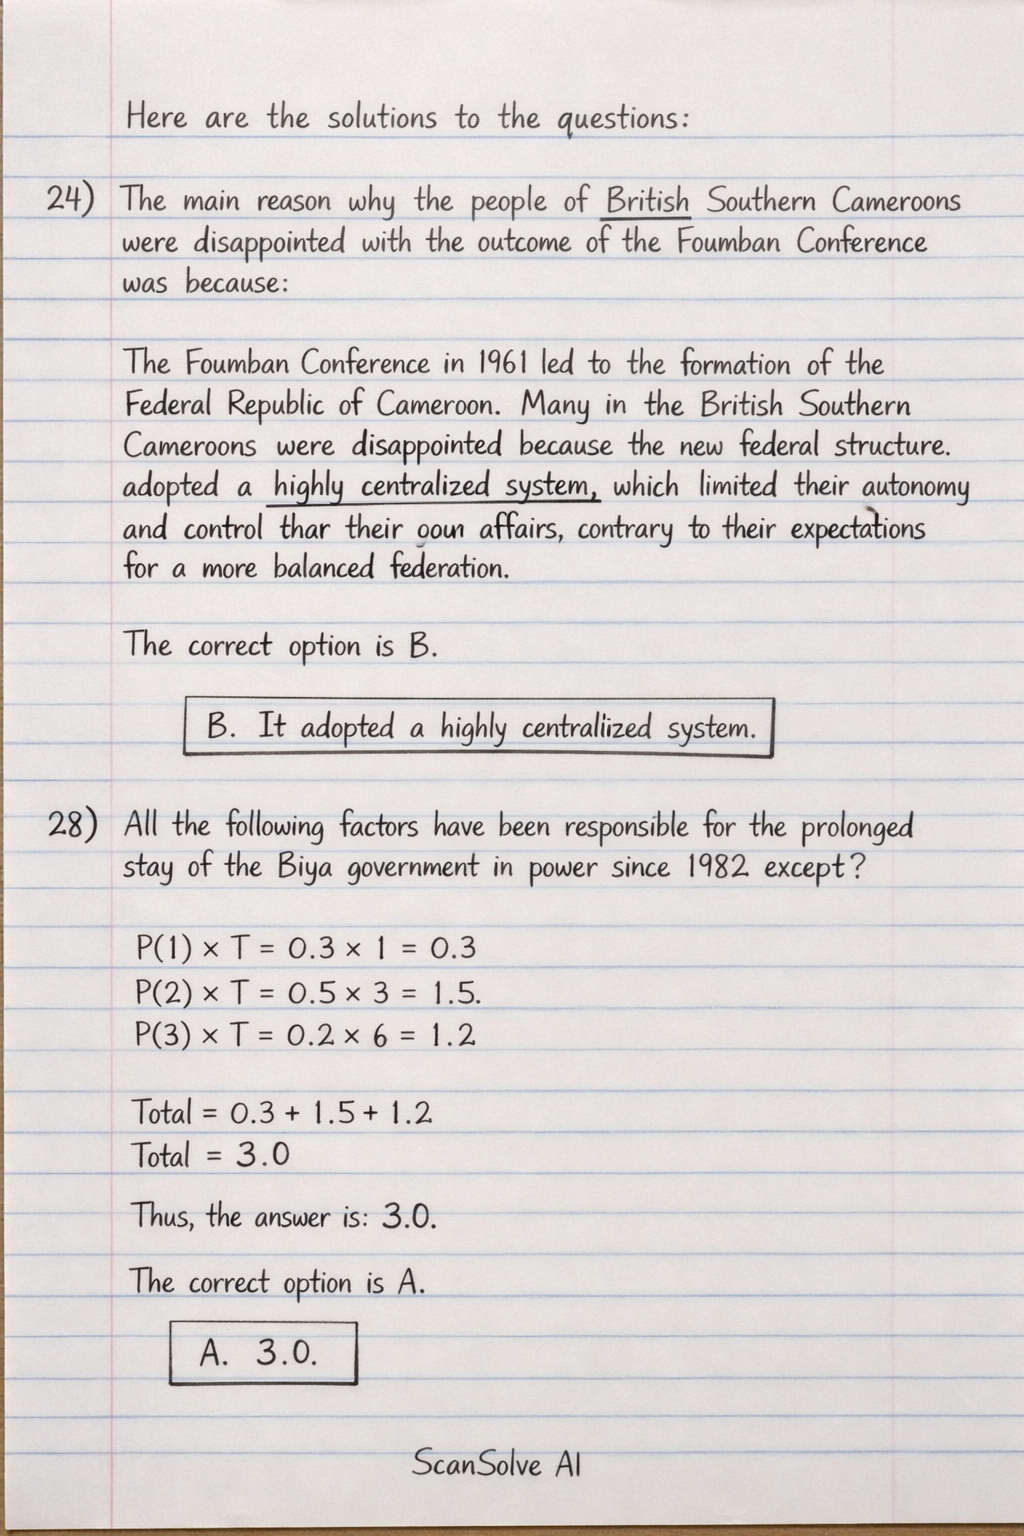 Here are the solutions to the questions:
24) The main reason why the people of British Southern Cameroons
were disappointed with the outcome of the Foumban Conference
was because:
The Foumban Conference in 1961 led to the formation of the
Federal Republic of Cameroon. Many in the British Southern
Cameroons were disappointed because the new federal structure.
adopted a highly centralized system, which limited their autonomy
and control thar their ooun affairs, contrary to their expectations
for a more balanced federation.
The correct option is B.
B. It adopted a highly centraliized system.
28) All the following factors have been responsible for the prolonged
stay of the Biya government in power since 1982 except?
P(1) × T = 0.3 × 1 = 0.3
P(2) × T = 0.5 × 3 = 1.5.
P(3) × T = 0.2 × 6 = 1.2
Total = 0.3 + 1.5 + 1.2
Total = 3.0
Thus, the answer is: 3.0.
The correct option is A.
A. 3.0.
ScanSolve AI